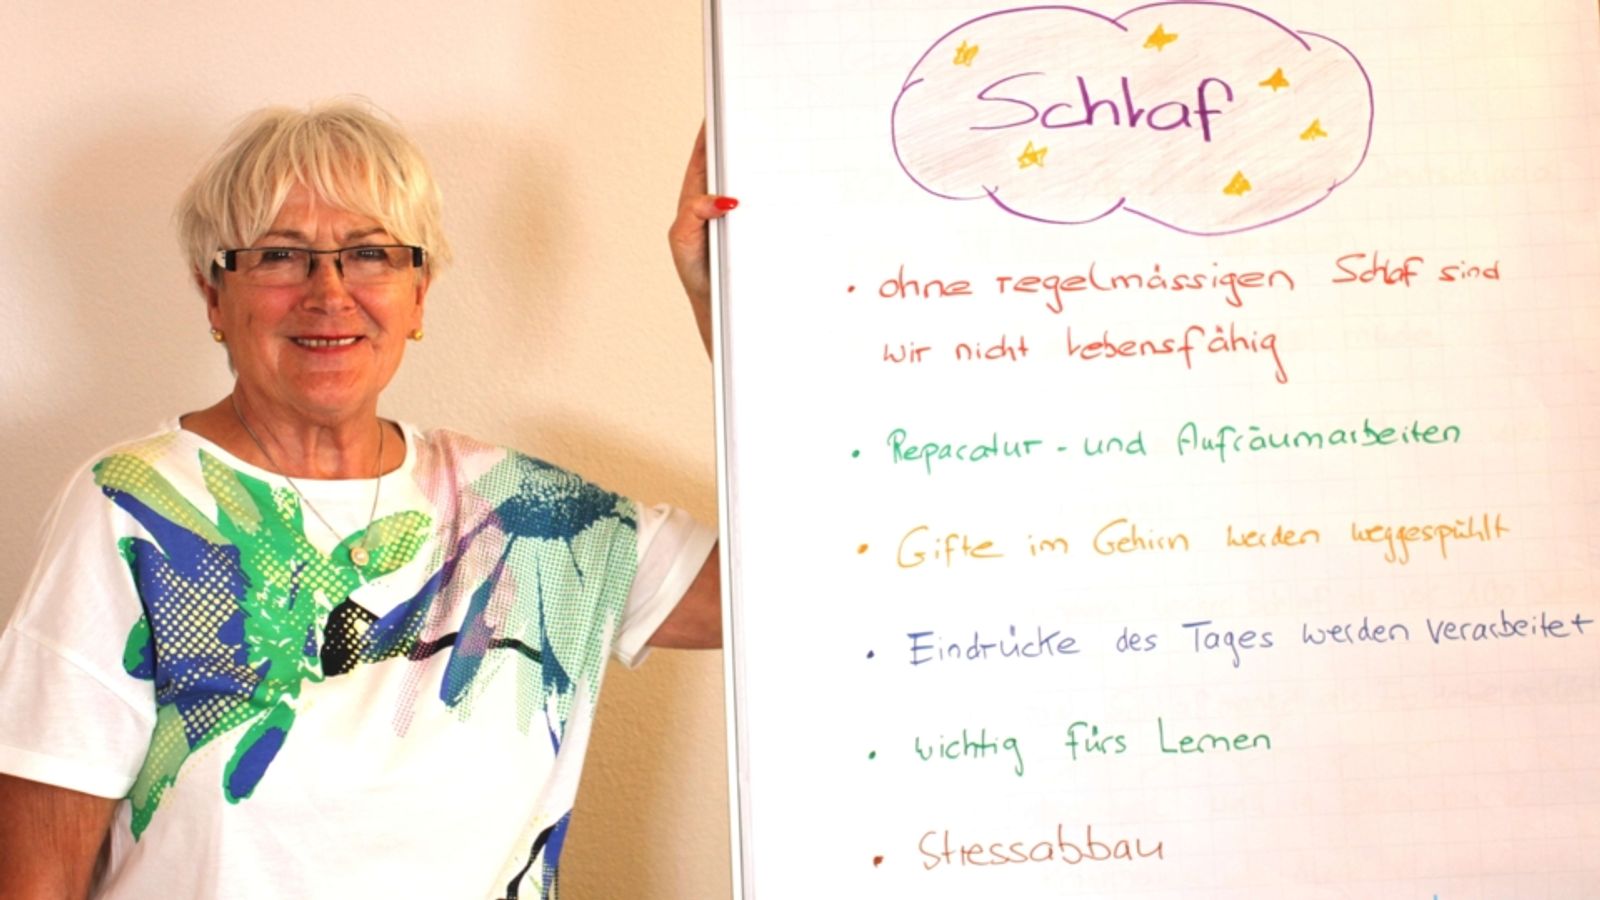 Schlaf
• ohne regelmässigen Schlaf sind
wir nicht lebensfähig
• Reparatur - und Aufräumarbeiten
• Gifte im Gehirn werden weggespühlt
• Eindrücke des Tages werden verarbeitet
• wichtig fürs Lernen
• Stressabbau